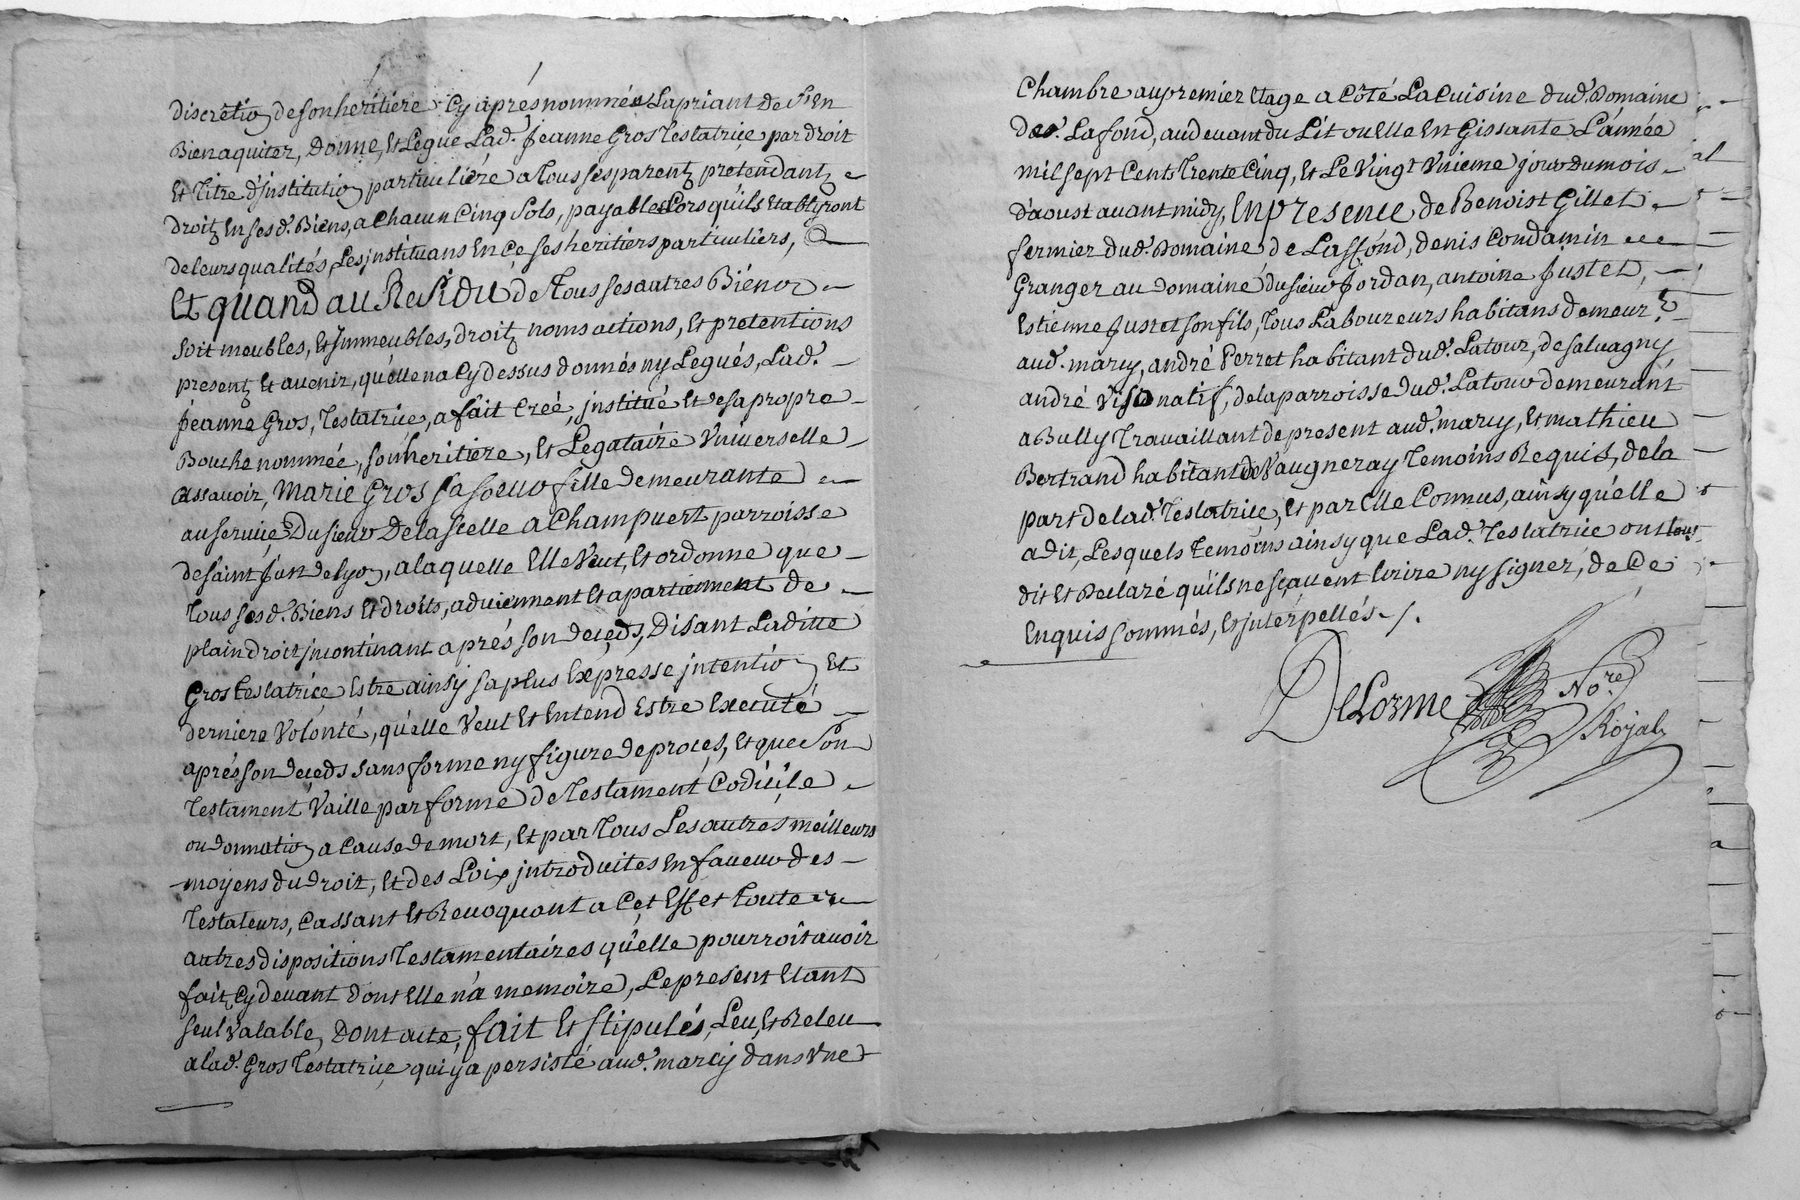 discretion de son heritiere cy aprés nommée La priant de s'en
Bien aquiter, Donne, et Legue Lad. Jeanne Gros Testatrice par droit
et Titre d'jnstitution particuliere a Tous ses parentz pretendantz
droitz en sesd. Biens, a Chacun Cinq Sols, payables Lors qu'ils etabliront
de leurs qualités Les jnstituans en ce ses heritiers particuliers,
Et quand au Residu de Tous ses autres Biens
soit meubles, et Jmmeubles, droitz noms actions, et pretentions
presentz et avenir, qu'elle na Cy dessus donnés ny Legués, Lad.
Jeanne Gros, Testatrice, a fait Creé, jnstitué et de sa propre
Bouche nommée, son heritiere, et Legataire Vniverselle
assavoir, Marie Gros sa soeur fille demeurante
au service du sieur Delascelle a Champvert parroisse
de saint Just de lyon, a laquelle Elle Veut, et ordonne que
Tous sesd. Biens et droits, adviennent et apartiennent de
plain droit jncontinant aprés son deceds, Disant Laditte
Gros testatrice Estre ainsy sa plus expresse jntention et
derniere Volonté, qu'elle Veut et Entend Estre Executé
aprés son deceds sans forme ny figure de proces, et que Son
Testament Vaille par forme de Testament Codicile
ou donnation a cause de mort, et par Tous Les autres meilleurs
moyens du Droit, et des Loix jntroduites en faveur des
Testateurs, Cassant et Revoquant a Cet Effet toute
autres dispositions Testamentaires qu'elle pourroit avoir
fait, Cy devant dont elle n'a memoire, Le present Etant
seul valable, Dont acte, fait Et stipulés, Leu, et Releu
a lad. Gros Testatrice qui y a persisté aud. marcy dans Vne
Chambre au premier Etage a Côté La Cuisine dud. Domaine
des. Lafond, au devant du Lit ou Elle En Gissante L'année
mil sept Cents Trente Cinq, et Le Vingt Vnieme jour du mois
d'aoust avant midy, En presence de Benoist Gillet
fermier dud. Domaine de Laffond, denis Condamin
Granger au Domaine du sieur Jordan, antoine Justet,
Estienne Justet son fils, Tous Laboureurs habitans demeur.t
aud. marcy, andré Perret habitant dud. Latour, de salvagny,
andré Viso natif, de la parroisse dud. Latour demeurant
a Bully Travaillant de present aud. marcy, et mathieu
Bertrand habitant de Vaugneray Temoins Requis, de la
part de lad. Testatrice, et par Elle Connus, ainsy qu'elle
a dit, Lesquels Temoins ainsy que Lad. Testatrice ont tous
dit et Declaré qu'ils ne sçavent Ecrire ny signer, de Ce
Enquis sommés, et jnterpellés ./.
DeLorme Nore
Royal